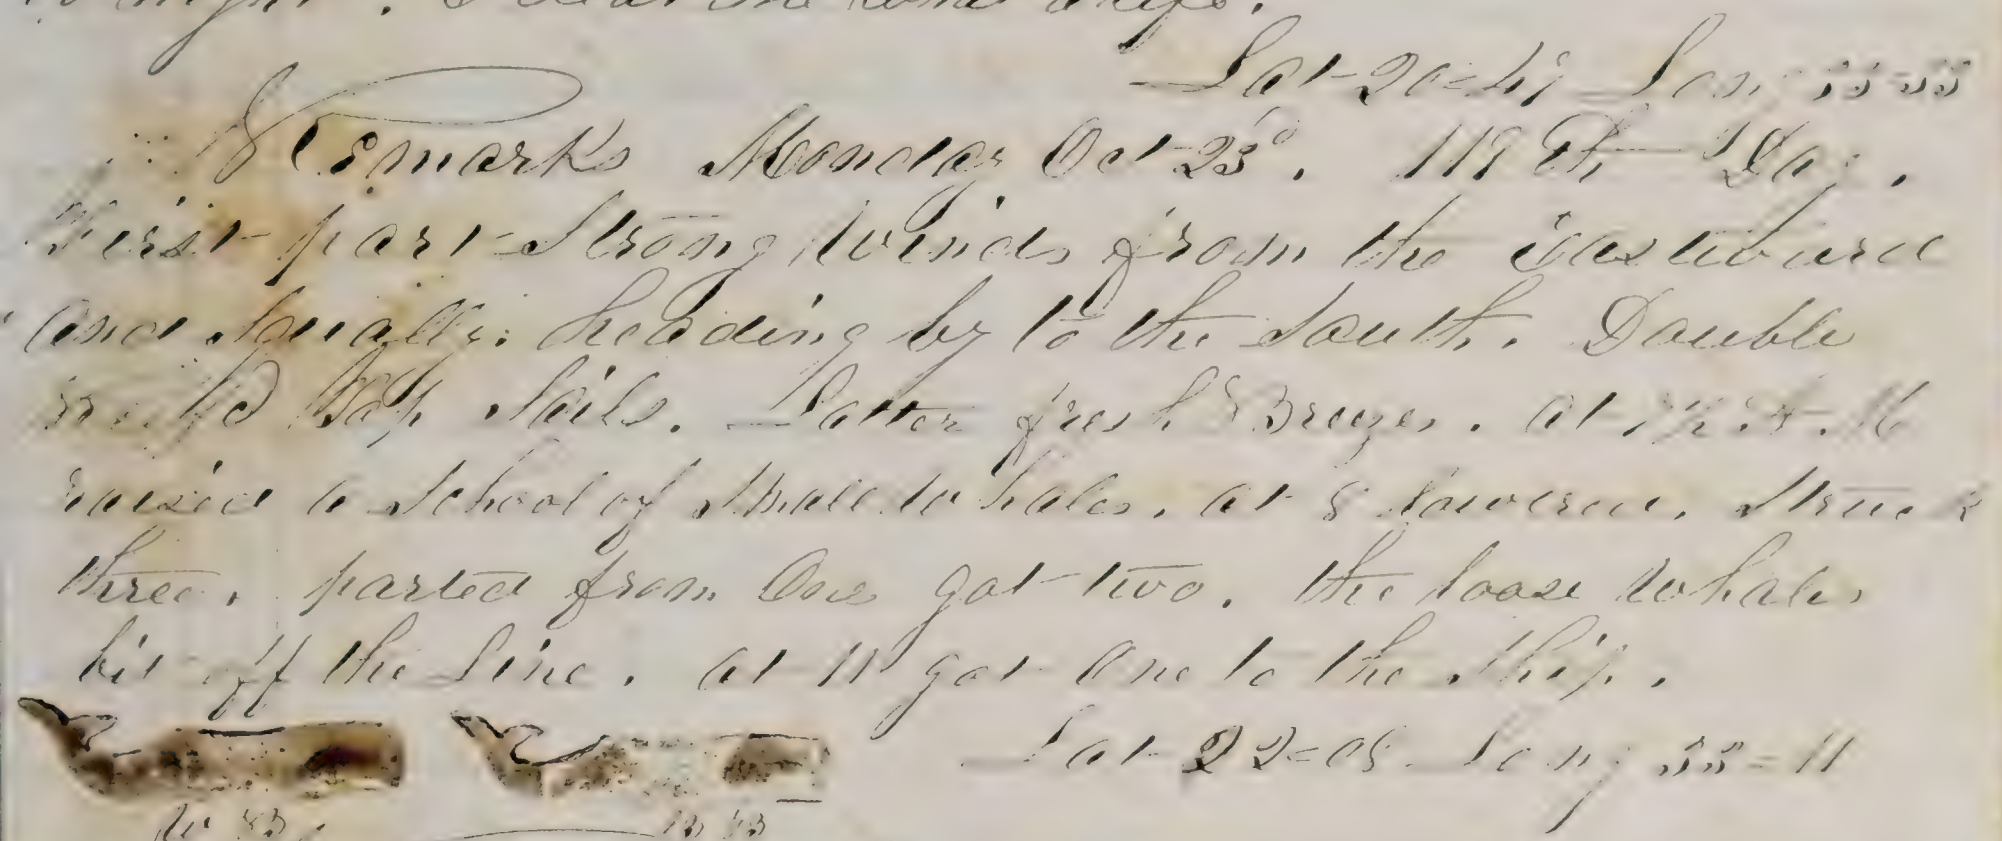 to night.
Lat 20=49 Long 55=55
Remarks Monday Oct 23d. 119th Day.
First part Strong Winds from the Eastward
and Squally. heading by to the South. Double
reef'd Top Sails. Latter fresh Breezes. at 7½ A.M
raised a School of Small Whales. at 8 lowered. Struck
three. parted from One got two. the loose Whales
bit off the Line. at 11 got One to the Ship.
Lat 22=08 Long 55=11